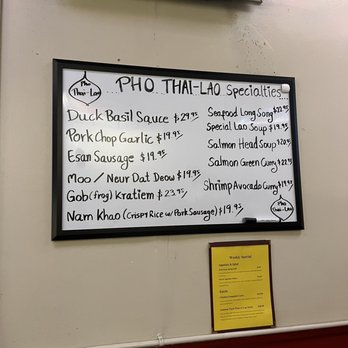 Pho
Thai-Lao
PHO THAI-LAO Specialties...
Duck Basil Sauce $29.95
Pork Chop Garlic $19.95
Esan Sausage $19.95
Moo/Neur Dat Deow $19.95
Gob(frog) Kratiem $23.95
Nam Khao (crispy Rice w/Pork Sausage) $19.95
Seafood Long Song $22.95
Special Lao Soup $19.95
Salmon Head Soup
Salmon Green Curry $22.95
Shrimp Avocado Curry $19.95
Pho
Thai-Lao
Weekly Special